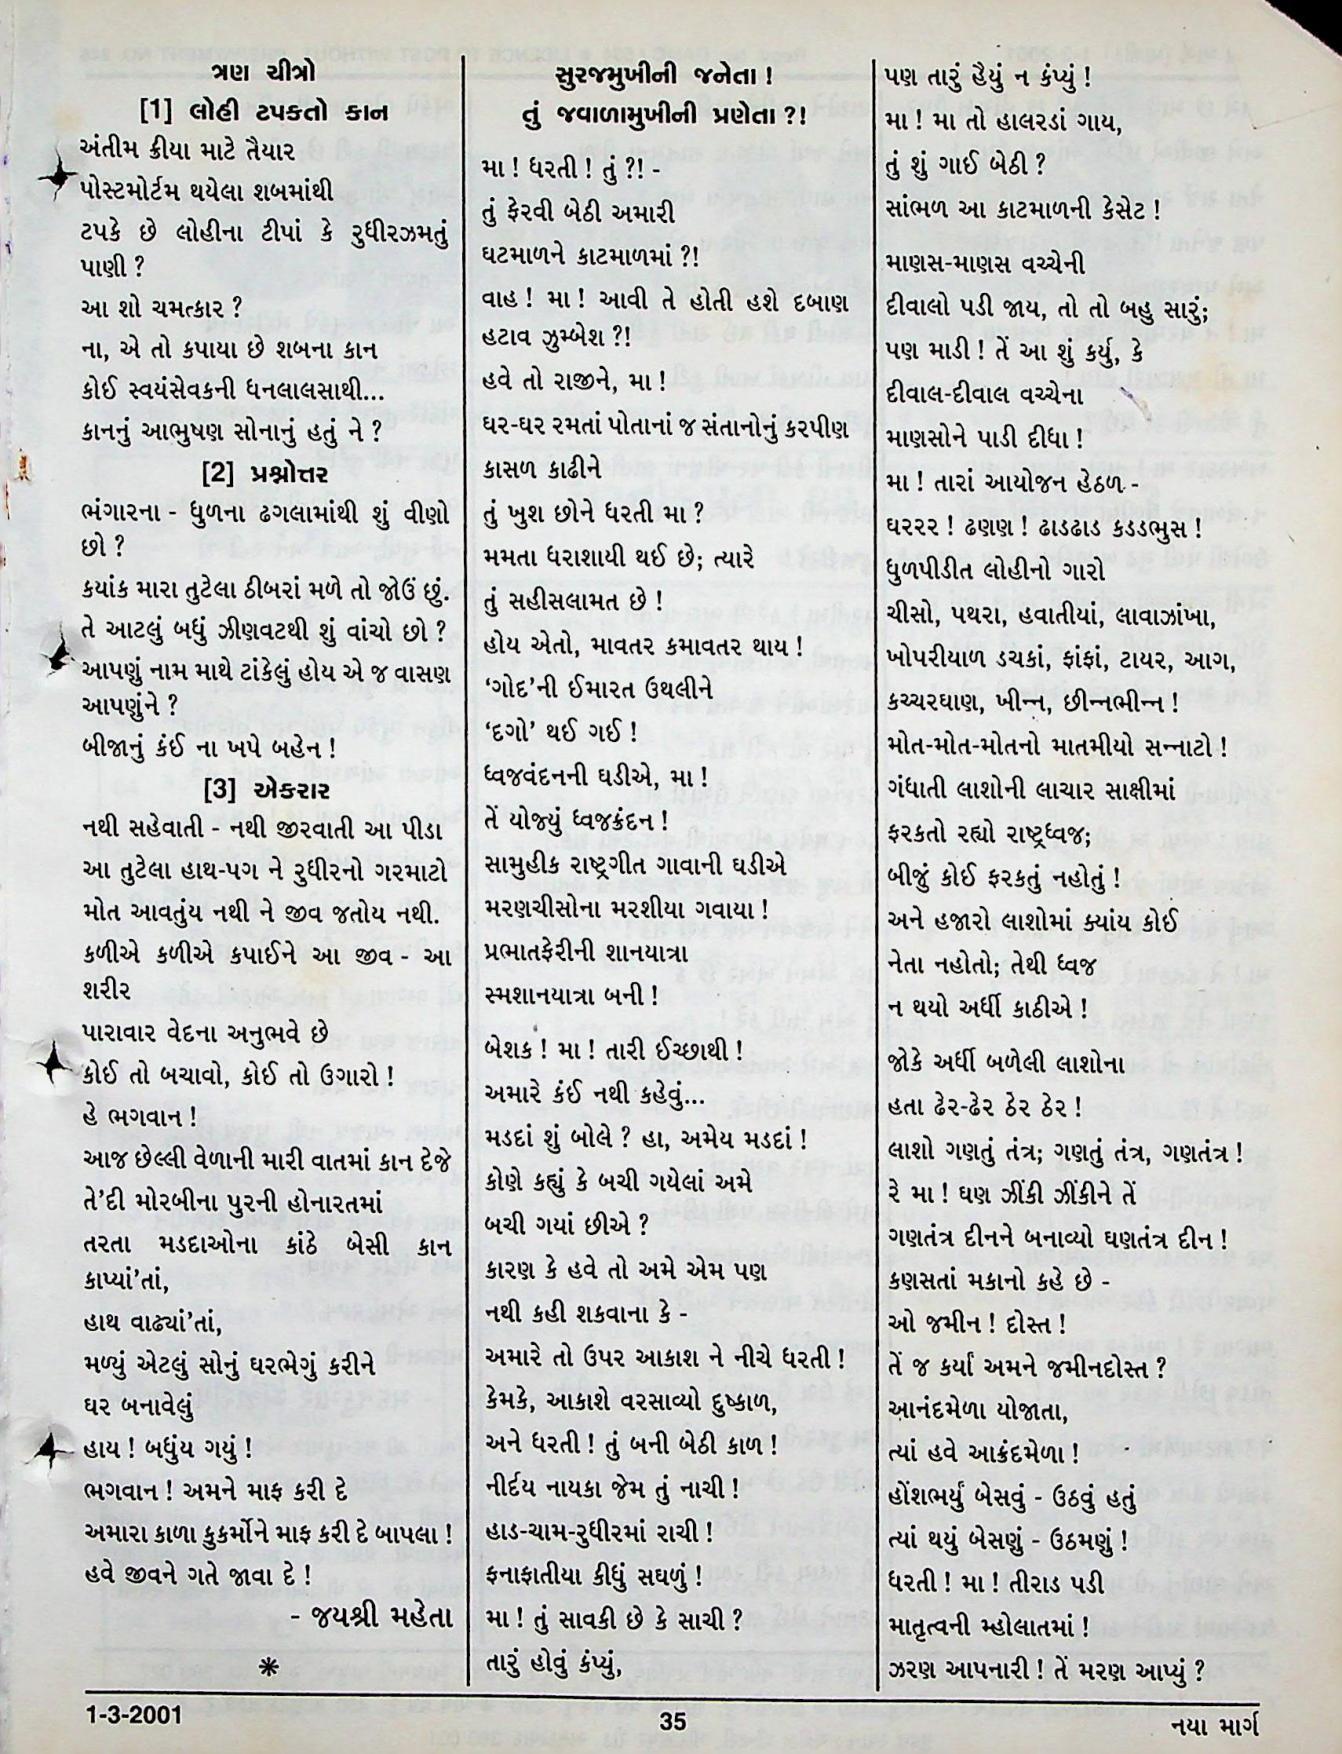 ત્રણ ચીત્રો
[1] લોહી ટપકતો કાન
અંતીમ ક્રીયા માટે તૈયાર
પોસ્ટમોર્ટમ થયેલા શબમાંથી
ટપકે છે લોહીના ટીપાં કે રુધીરઝમતું
પાણી ?
આ શો ચમત્કાર ?
ના, એ તો કપાયા છે શબના કાન
કોઈ સ્વયંસેવકની ધનલાલસાથી...
કાનનું આભુષણ સોનાનું હતું ને ?
[2] પ્રશ્નોત્તર
ભંગારના - ધુળના ઢગલામાંથી શું વીણો
છો ?
કયાંક મારા તુટેલા ઠીબરાં મળે તો જોઉં છું.
તે આટલું બધું ઝીણવટથી શું વાંચો છો ?
આપણું નામ માથે ટાંકેલું હોય એ જ વાસણ
આપણુંને ?
બીજાનું કંઈ ના ખપે બહેન !
[3] એકરાર
નથી સહેવાતી - નથી જીરવાતી આ પીડા
આ તુટેલા હાથ-પગ ને રુધીરનો ગરમાટો
મોત આવતુંય નથી ને જીવ જતોય નથી.
કળીએ કળીએ કપાઈને આ જીવ - આ
શરીર
પારાવાર વેદના અનુભવે છે
કોઈ તો બચાવો, કોઈ તો ઉગારો !
હે ભગવાન !
આજ છેલ્લી વેળાની મારી વાતમાં કાન દેજે
તે'દી મોરબીના પુરની હોનારતમાં
તરતા મડદાઓના કાંઠે બેસી કાન
કાપ્યાં'તાં,
હાથ વાઢ્યાં'તાં,
મળ્યું એટલું સોનું ઘરભેગું કરીને
ઘર બનાવેલું
હાય ! બધુંય ગયું !
ભગવાન ! અમને માફ કરી દે
અમારા કાળા કુકર્મોને માફ કરી દે બાપલા !
હવે જીવને ગતે જાવા દે !
- જયશ્રી મહેતા
*
સુરજમુખીની જનેતા !
તું જવાળામુખીની પ્રણેતા ?!
મા ! ધરતી ! તું ?! -
તું ફેરવી બેઠી અમારી
ઘટમાળને કાટમાળમાં ?!
વાહ ! મા ! આવી તે હોતી હશે દબાણ
હટાવ ઝુમ્બેશ ?!
હવે તો રાજીને, મા !
ઘર-ઘર રમતાં પોતાનાં જ સંતાનોનું કરપીણ
કાસળ કાઢીને
તું ખુશ છોને ધરતી મા ?
મમતા ધરાશાયી થઈ છે; ત્યારે
તું સહીસલામત છે !
હોય એતો, માવતર કમાવતર થાય !
‘ગોદ’ની ઈમારત ઉથલીને
‘દગો’ થઈ ગઈ !
ધ્વજવંદનની ઘડીએ, મા !
તેં યોજ્યું ધ્વજક્રંદન !
સામુહીક રાષ્ટ્રગીત ગાવાની ઘડીએ
મરણચીસોના મરશીયા ગવાયા !
પ્રભાતફેરીની શાનયાત્રા
સ્મશાનયાત્રા બની !
બેશક ! મા ! તારી ઈચ્છાથી !
અમારે કંઈ નથી કહેવું...
મડદાં શું બોલે ? હા, અમેય મડદાં !
કોણે કહ્યું કે બચી ગયેલાં અમે
બચી ગયાં છીએ ?
કારણ કે હવે તો અમે એમ પણ
નથી કહી શકવાના કે -
અમારે તો ઉપર આકાશ ને નીચે ધરતી !
કેમકે, આકાશે વરસાવ્યો દુષ્કાળ,
અને ધરતી ! તું બની બેઠી કાળ !
નીર્દય નાયકા જેમ તું નાચી !
હાડ-ચામ-રુધીરમાં રાચી !
ફનાફાતીયા કીધું સઘળું !
મા ! તું સાવકી છે કે સાચી ?
તારું હોવું કંપ્યું,
પણ તારું હૈયું ન કંપ્યું !
મા ! મા તો હાલરડાં ગાય,
તું શું ગાઈ બેઠી ?
સાંભળ આ કાટમાળની કેસેટ !
માણસ-માણસ વચ્ચેની
દીવાલો પડી જાય, તો તો બહુ સારું;
પણ માડી ! તેં આ શું કર્યુ, કે
દીવાલ-દીવાલ વચ્ચેના
માણસોને પાડી દીધા !
મા ! તારાં આયોજન હેઠળ -
ઘરરર ! ઢણણ ! ઢાડઢાડ કડડભુસ !
ધુળપીડીત લોહીનો ગારો
ચીસો, પથરા, હવાતીયાં, લાવાઝાંખા,
ખોપરીયાળ ડચકાં, ફાંફાં, ટાયર, આગ,
કચ્ચરઘાણ, ખીન્ન, છીન્નભીન્ન !
મોત-મોત-મોતનો માતમીયો સન્નાટો !
ગંધાતી લાશોની લાચાર સાક્ષીમાં
ફરકતો રહ્યો રાષ્ટ્રધ્વજ;
બીજું કોઈ ફરકતું નહોતું !
અને હજારો લાશોમાં ક્યાંય કોઈ
નેતા નહોતો; તેથી ધ્વજ
ન થયો અર્ધી કાઠીએ !
જોકે અર્ધી બળેલી લાશોના
હતા ઢેર-ઢેર ઠેર ઠેર !
લાશો ગણતું તંત્ર; ગણતું તંત્ર, ગણતંત્ર !
રે મા ! ઘણ ઝીંકી ઝીંકીને તેં
ગણતંત્ર દીનને બનાવ્યો ઘણતંત્ર દીન !
કણસતાં મકાનો કહે છે -
ઓ જમીન ! દોસ્ત !
તેં જ કર્યાં અમને જમીનદોસ્ત ?
આનંદમેળા યોજાતા,
ત્યાં હવે આક્રંદમેળા !
હોંશભર્યું બેસવું - ઉઠવું હતું
ત્યાં થયું બેસણું - ઉઠમણું !
ધરતી ! મા ! તીરાડ પડી
માતૃત્વની મ્હોલાતમાં !
ઝરણ આપનારી ! તેં મરણ આપ્યું ?
1-3-2001
35
નયા માર્ગ